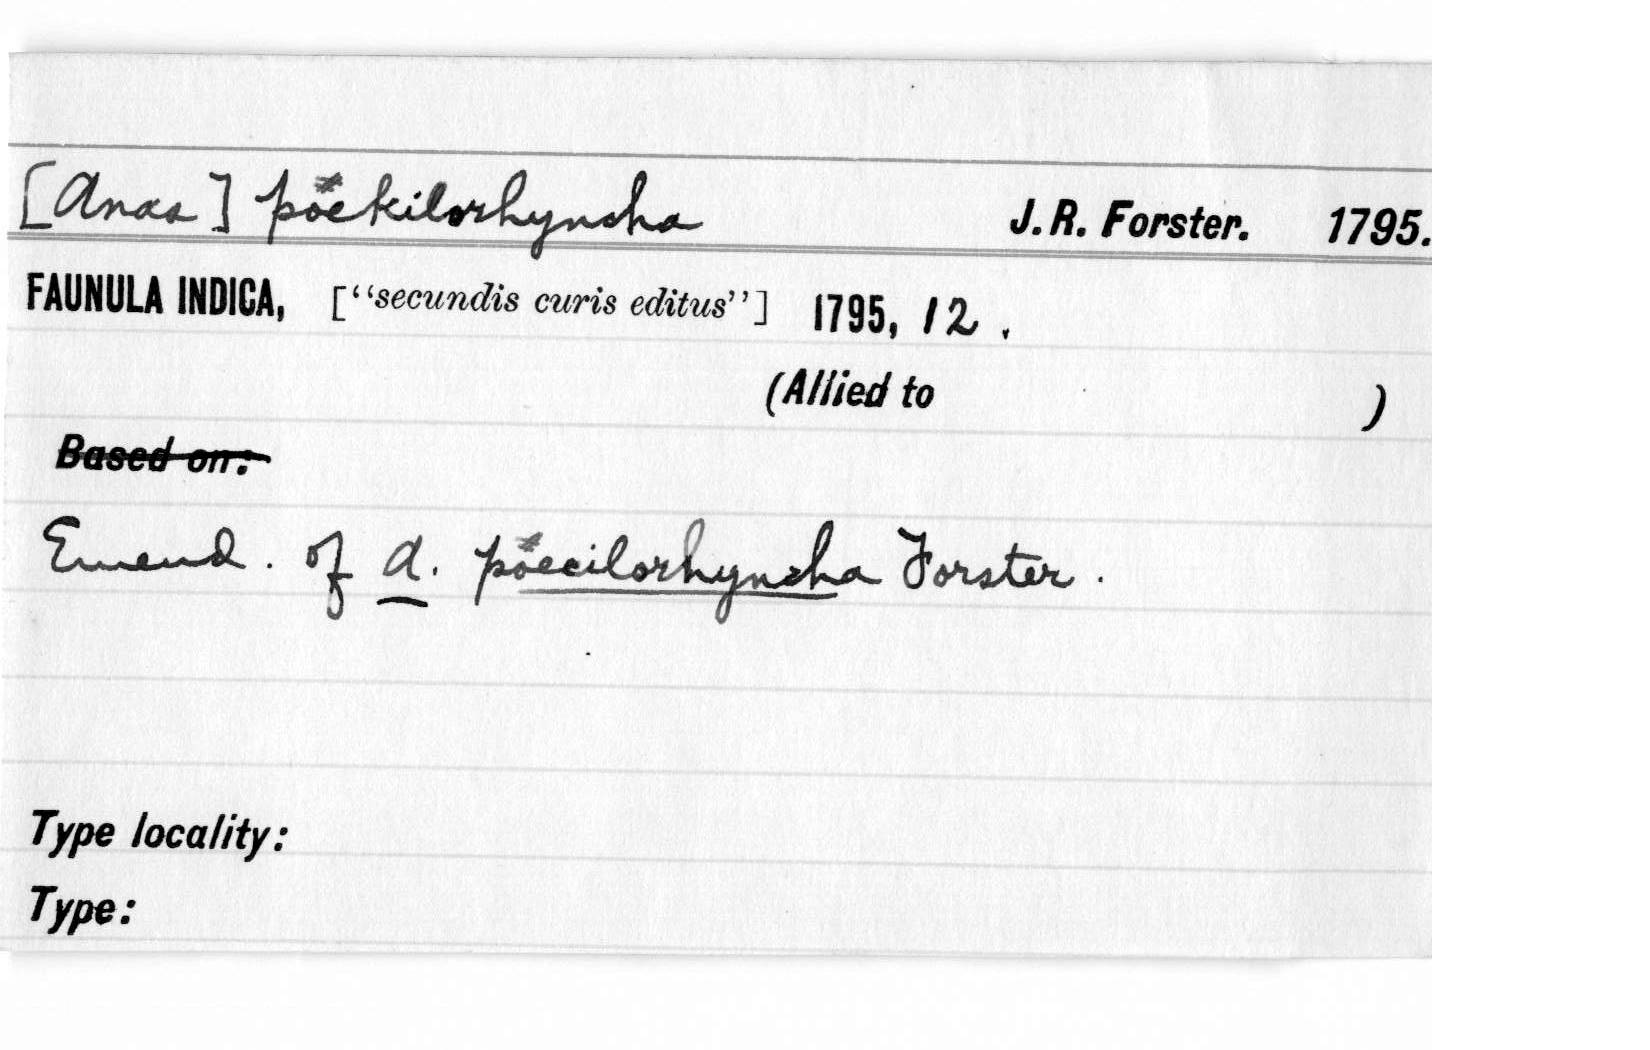 [Anas] pöekilorhyncha J. R. Forster. 1795.
FAUNULA INDICA, [“secundis curis editus”] 1795, 12 .
(Allied to )
Based on:
Emend. of A. pöecilorhyncha Forster.
Type locality:
Type: